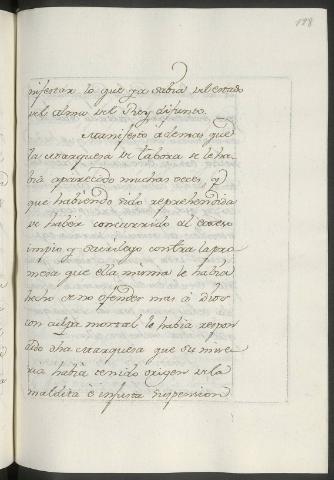 188
nifestar lo que ya sabia del estado
del alma del Rey difunto.
Manifestò ademas que
la Marquesa de Tabora se le ha-
bia aparecido muchas veces, y
que habiendo sido reprehendida
de haber concurrido al
impio y sacrilego contra la pro-
mesa que ella misma le habia
hecho de no ofender mas á Dios
con culpa mortal le habia respon-
dido dha Marquesa que su mise-
ria habia tenido origen de la
maldita è injusta suspension